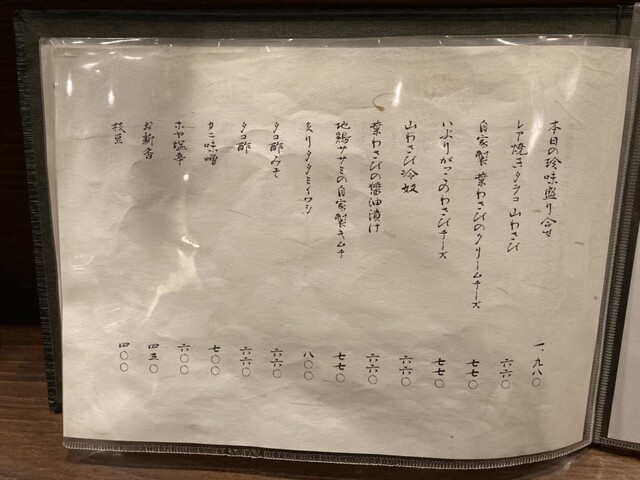 本日の珍味盛り合せ 一、九八〇
レア焼きタラコ 山わさび 六六〇
自家製 葉わさびのクリームチーズ 七七〇
いぶりがっこのわさびチーズ 七七〇
山わさび冷奴 六六〇
葉わさびの醤油漬け 六六〇
地鶏ササミの自家製キムチ 七七〇
炙りタタミイワシ 八〇〇
タコ酢みそ 六六〇
タコ酢 六六〇
カニ味噌 七〇〇
ホヤ塩辛 六〇〇
お新香 四五〇
枝豆 四〇〇